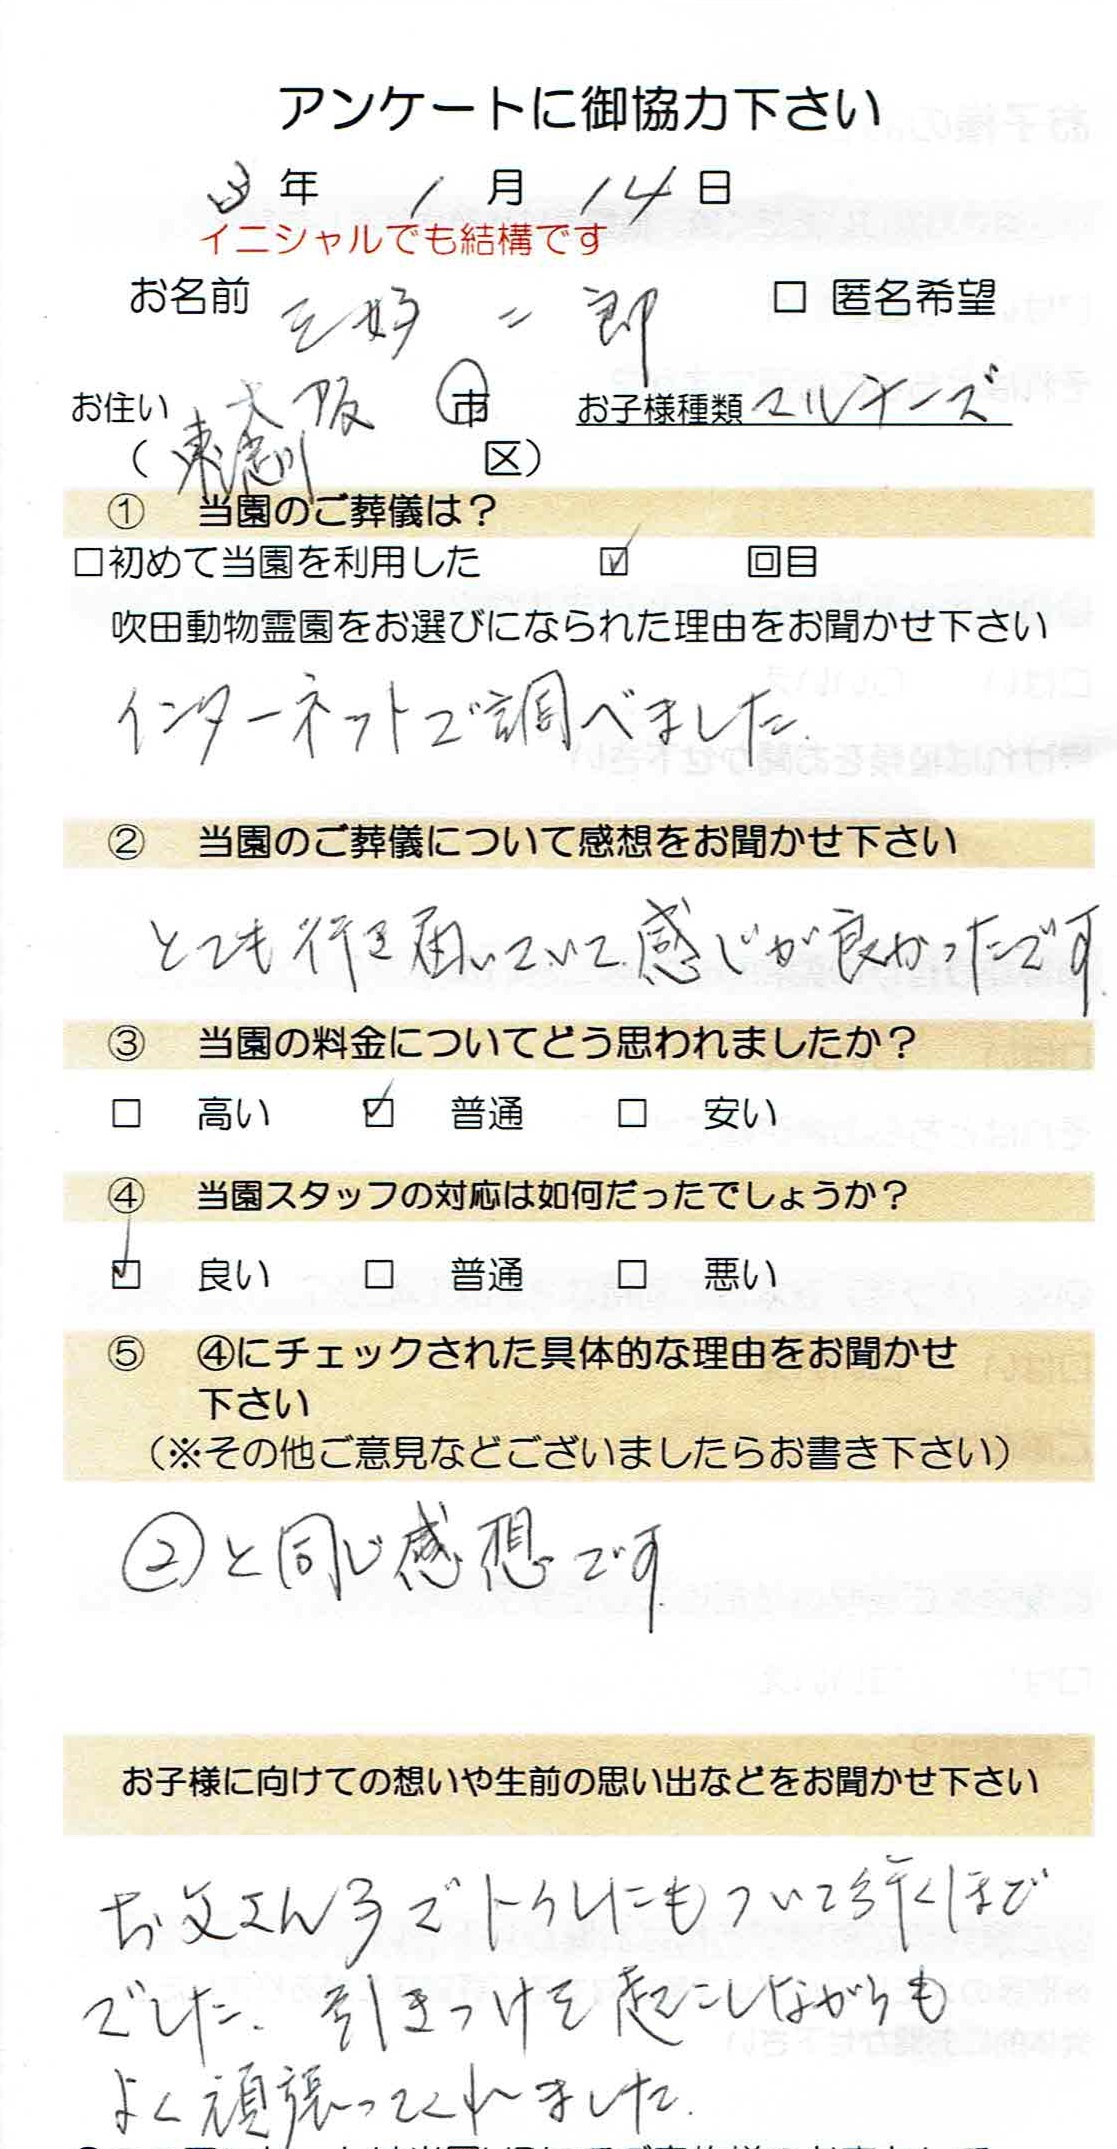 アンケートに御協力下さい
3 年 1 月 14 日
イニシャルでも結構です
お名前 三好 二郎 □ 匿名希望
お住い 大阪 市 お子様種類 マルチーズ
（東淀川 区）
① 当園のご葬儀は？
□初めて当園を利用した ☑ 回目
吹田動物霊園をお選びになられた理由をお聞かせ下さい
インターネットで調べました.
② 当園のご葬儀について感想をお聞かせ下さい
とても行き届いていて感じが良かったです.
③ 当園の料金についてどう思われましたか？
□ 高い ☑ 普通 □ 安い
④ 当園スタッフの対応は如何だったでしょうか？
☑ 良い □ 普通 □ 悪い
⑤ ④にチェックされた具体的な理由をお聞かせ
下さい
（※その他ご意見などございましたらお書き下さい）
②と同じ感想です.
お子様に向けての想いや生前の思い出などをお聞かせ下さい
お父さん子でトイレにもついて行くほど
でした. 引きつけを起こしながらも
よく頑張ってくれました.